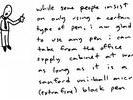 while some people insist
on only using a certain
type of pen, i am glad
to use any pen i can
take from the office
supply cabinet at work
as long as it is a
sanford uni-ball micro
(extra fine) black pen